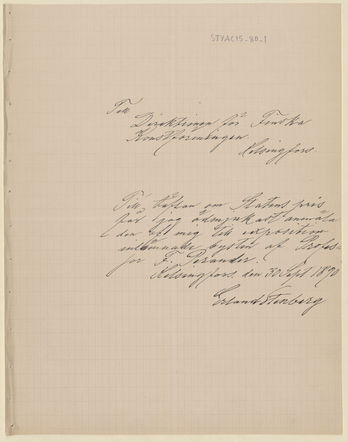 STYAC15-80_1
Till
Direktionen för Finska
Konstföreningen
Helsingfors.
Till täflan om Statens pris
får jag ödmjukast anmäla
den af mig till exposition
inlemnade bysten af Profes-
sor F. Perander.
Helsingfors. den 30 Sept 1890
Erland Stenberg